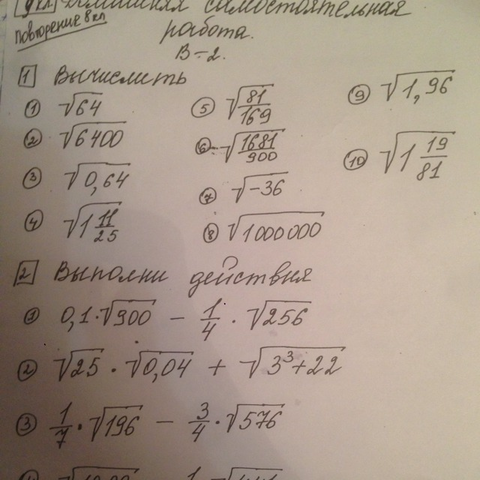 9 кл. Домашняя самостоятельная
Повторение 8 кл
работа.
В-2.
1 Вычислить
① √64
② √6400
③ √0,64
④ √(1 11/25)
⑤ √(81/169)
⑥ -√(1681/900)
⑦ √(-36)
⑧ √1000000
⑨ √1,96
⑩ √(1 19/81)
2 Выполни действия
① 0,1·√900 − 1/4 · √256
② √25 · √0,04 + √(3³+22)
③ 1/7 · √196 − 3/4 · √576